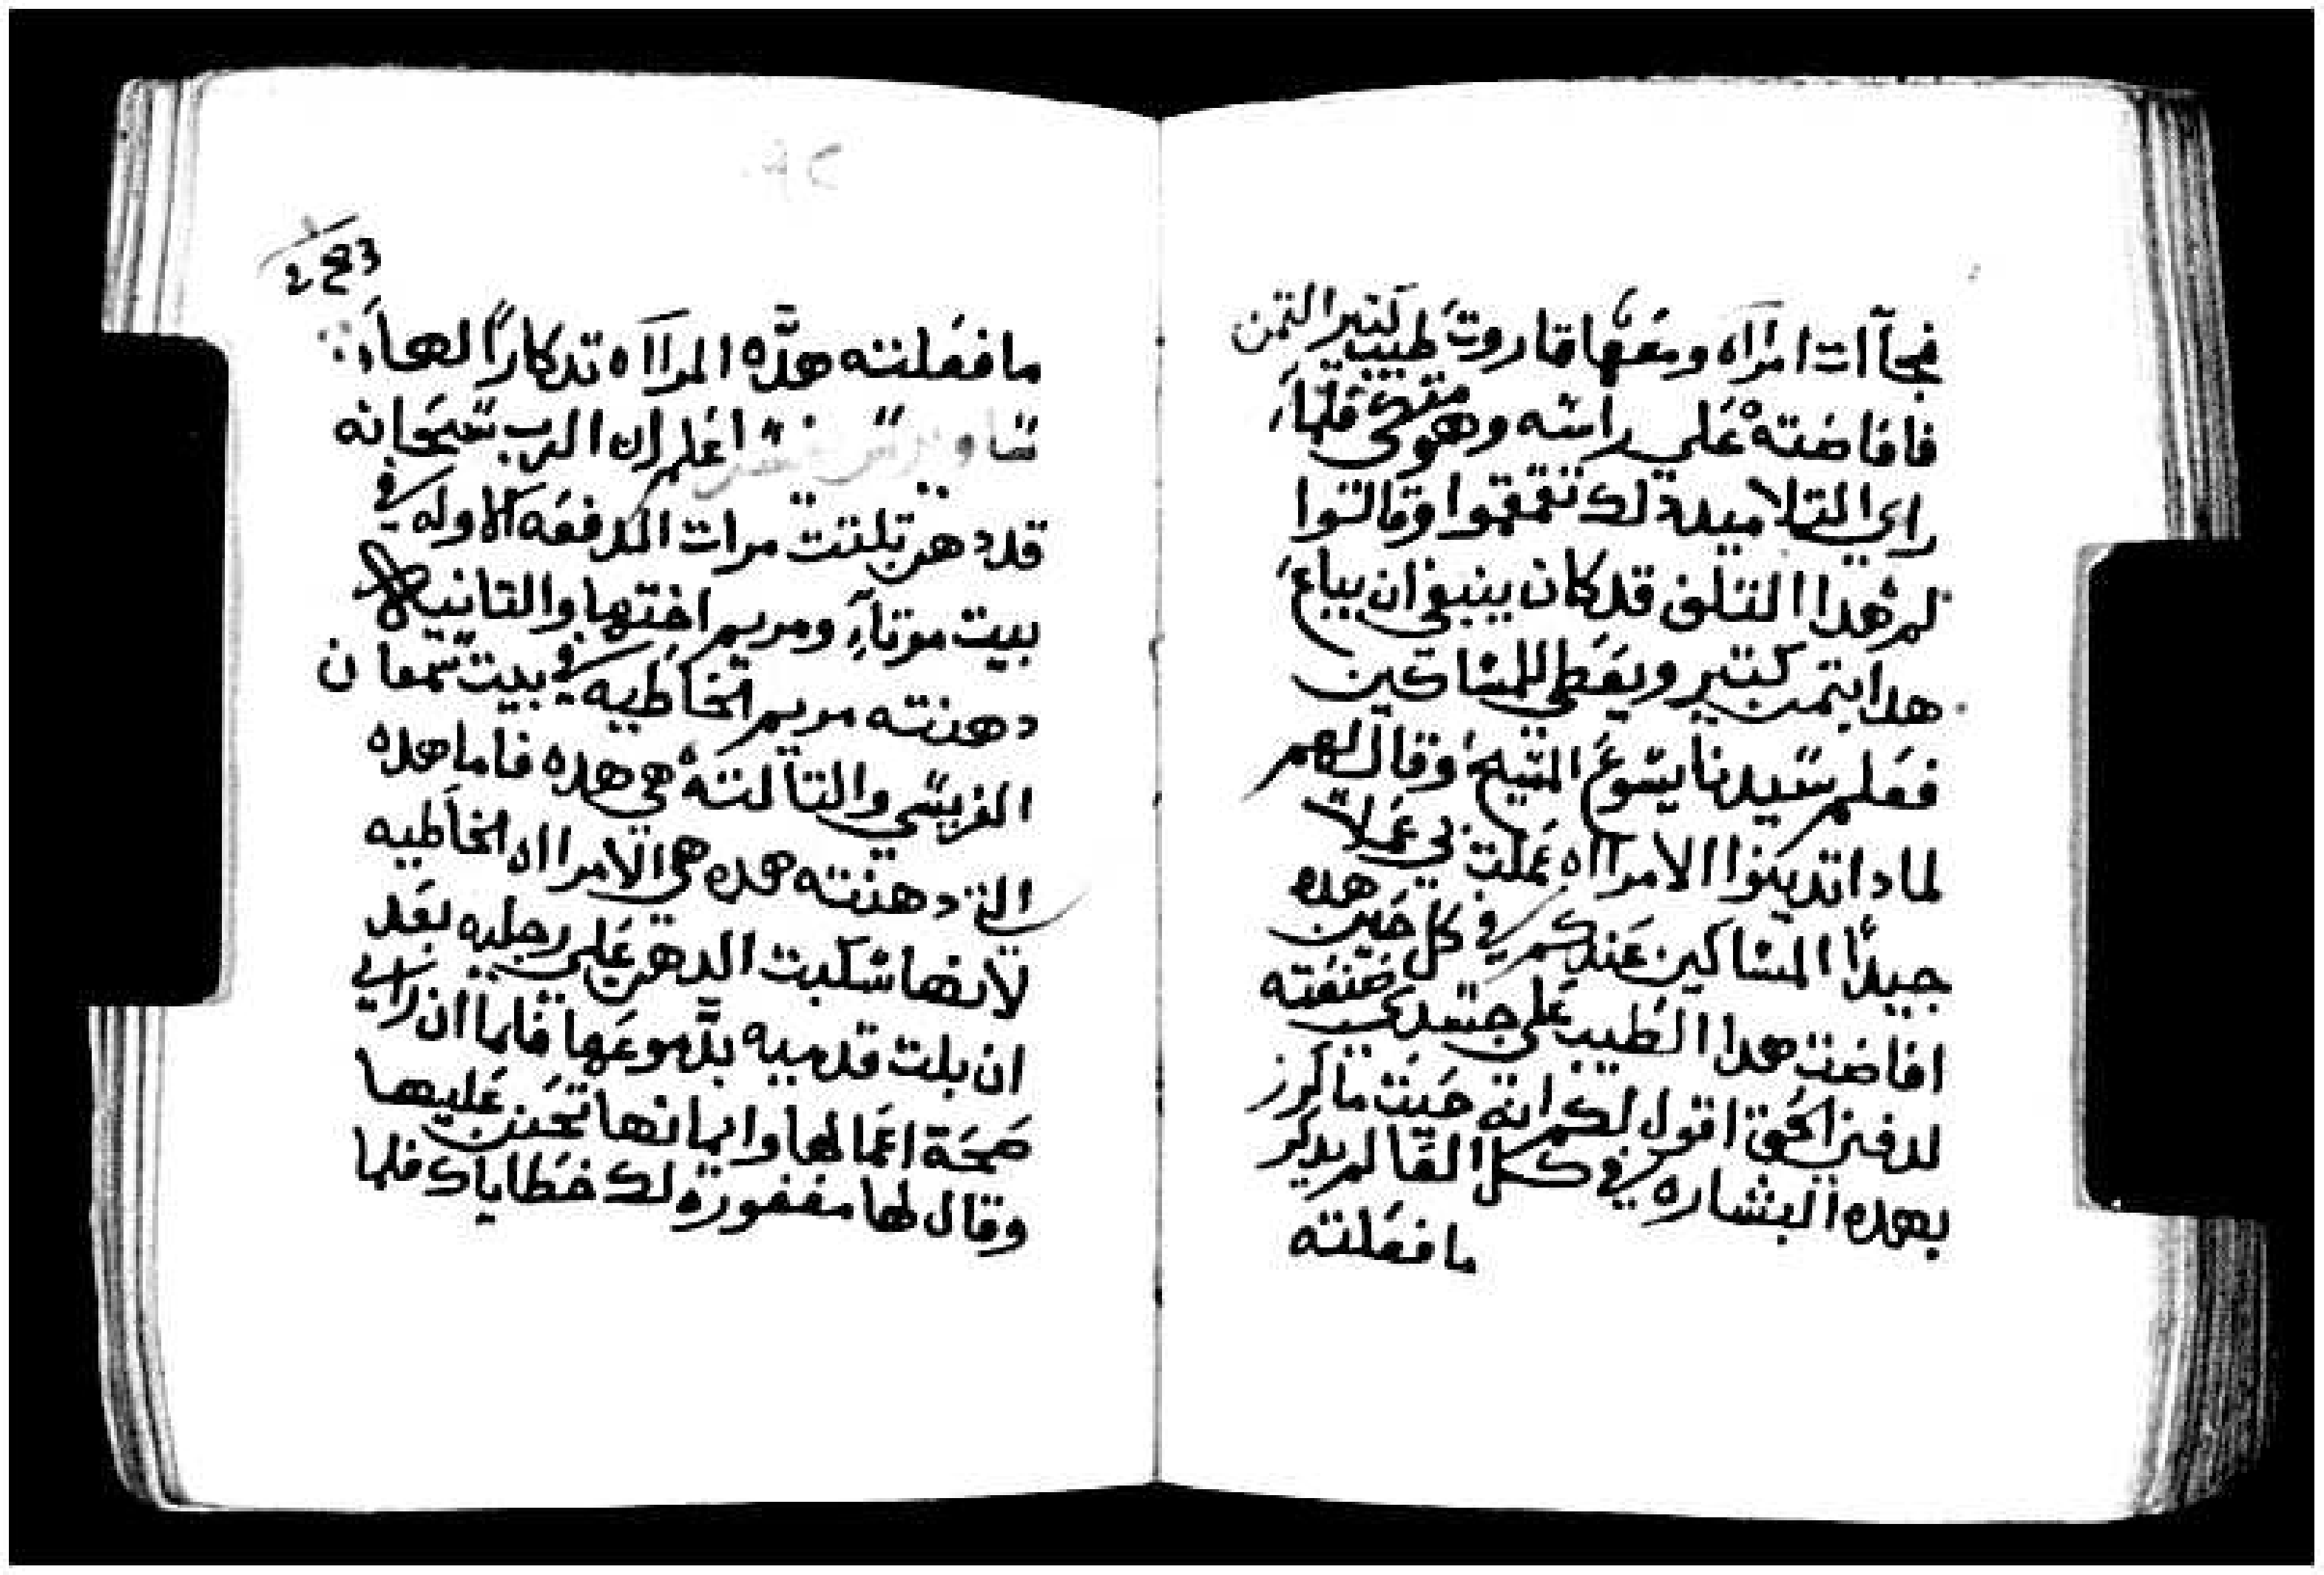 فجآات امرااه ومعها قاروت طيب كتير التمن
فافاضته علي راسه وهو متكي فلما
راي التلاميد دلك تقمقموا وقالوا
لم هدا التلف قد كان ينبغي ان يباع
هدا بتمن كتير ويعطي للمساكين
فعلم سيدنا يسوع المسيح وقال لهم
لمادا تدينوا الامرااه عملت بي عملا
جيدًا المساكين عندكم في كل حين هده
افاضت هدا الطيب علي جسدي صنعته
لدفني الحق اقول لكم انه حيت ما كرز
بهده البشاره في كل العالم يدكر
ما فعلته
ما فعلته هده المرااه تدكارًا لها
اعلم ان الرب سبحانه
قد دهن تلتت مرات الدفعه الاوله في
بيت مرتا ومريم اختها والتانيه
دهنته مريم الخاطيه في بيت سمعان
الفريسي والتالته هي هده فاما هده
التي دهنته هده هي الامرااه الخاطيه
لانها سكبت الدهن علي رجليه بعد
ان بلت قدميه بدموعها فلما ان راي
صحة اعمالها وايمانها تحنن عليها
وقال لها مغفورة لك خطاياك فلما